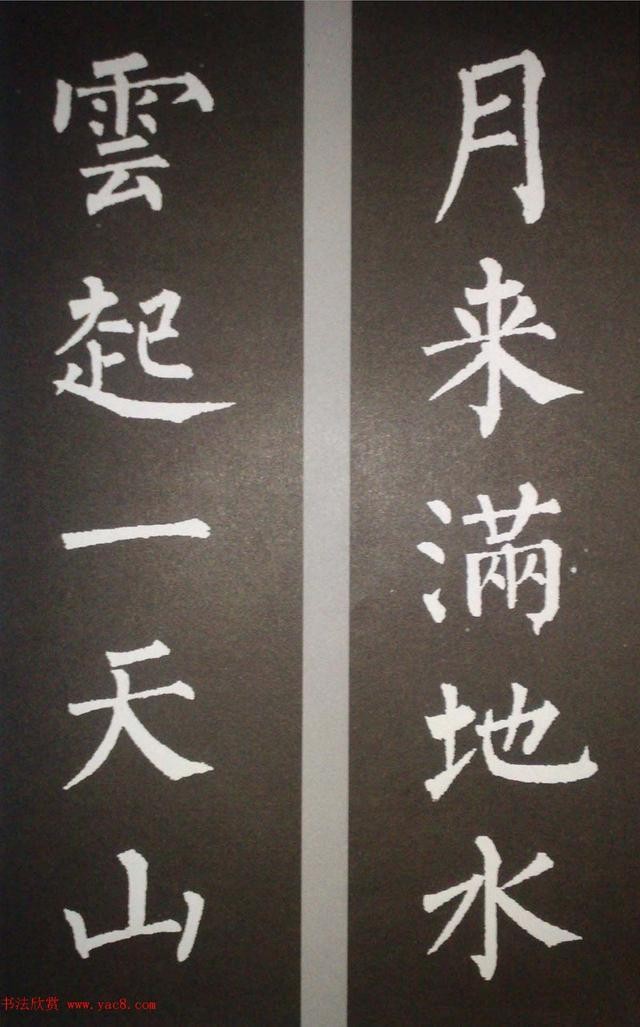 月来滿地水
雲起一天山
书法欣赏 www.yac8.com